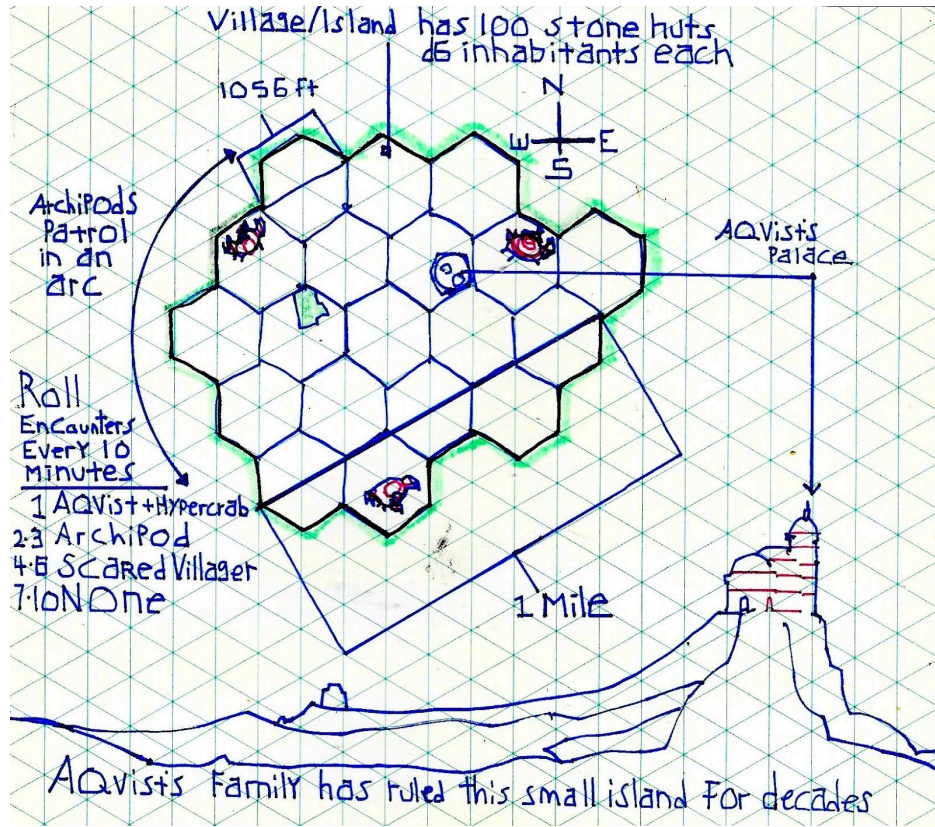 Village/Island has 100 stone huts
d6 inhabitants each
1056 ft
N
W E
S
ArchiPods
Patrol
in an
arc
AQVists
Palace
Roll
Encounters
Every 10
Minutes
1 AQVist+Hypercrab
2-3 ArchiPod
4-6 Scared Villager
7-10 None
1 Mile
AQvists Family has ruled this small island For decades